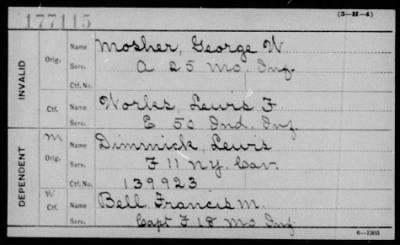 177115
(3-H-4)
INVALID
Orig. Name Mosher, George W.
Serv. A 25 Mo. Inf.
Ctf. No.
Ctf. Name Works, Lewis F
Serv. E 50 Ind. Inf.
DEPENDENT
M
Orig. Name Dimmick, Lewis
Serv. F 11 N.Y. Cav.
Ctf. No. 139923
W
Ctf. Name Bell, Francis M.
Serv. Capt F 18 Mo Inf